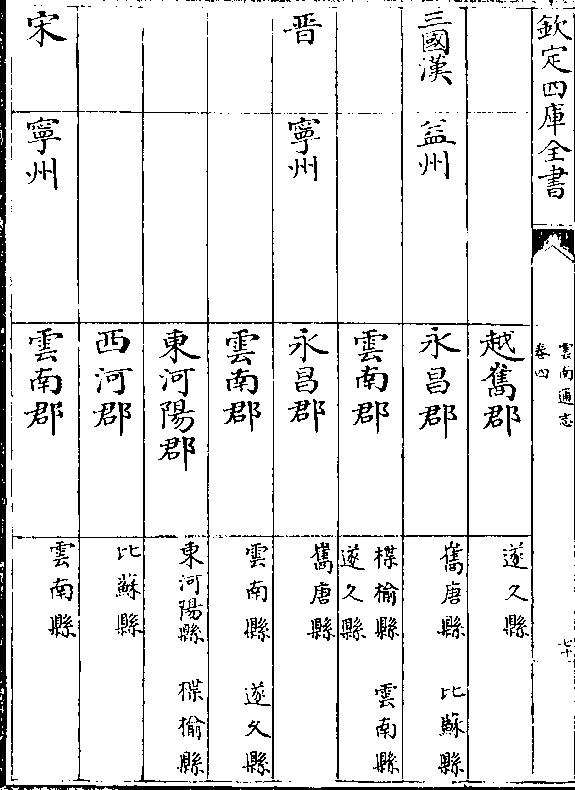 欽定四庫全書
雲南通志
卷四
越嶲郡 遂久縣
三國漢 益州 永昌郡 嶲唐縣 比蘇縣
雲南郡 楪榆縣 雲南縣
遂久縣
晋 寧州 永昌郡 嶲唐縣
雲南郡 雲南縣 遂久縣
東河陽郡 東河陽縣 楪榆縣
西河郡 比蘇縣
宋 寧州 雲南郡 雲南縣